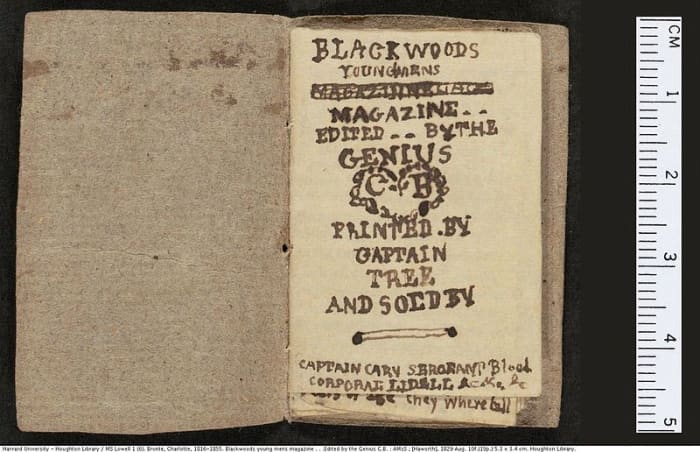 BLACKWOODS
YOUNGMENS
MAGAZINE . .
EDITED . . BY THE
GENIUS
C · B
PRINTED . BY
CAPTAIN
TREE
AND SOLD BY
CAPTAIN CARY SERGEANT Blood
CORPORAL LIDELL &c &c &c
they where all
CM
1
2
3
4
5
Harvard University - Houghton Library / MS Lowell 1 (6). Bronte, Charlotte, 1816-1855. Blackwoods young mens magazine . . . Edited by the Genius C.B. : AMsS ; [Haworth], 1829 Aug. 10f.(19p.) 5.3 x 3.4 cm. Houghton Library.